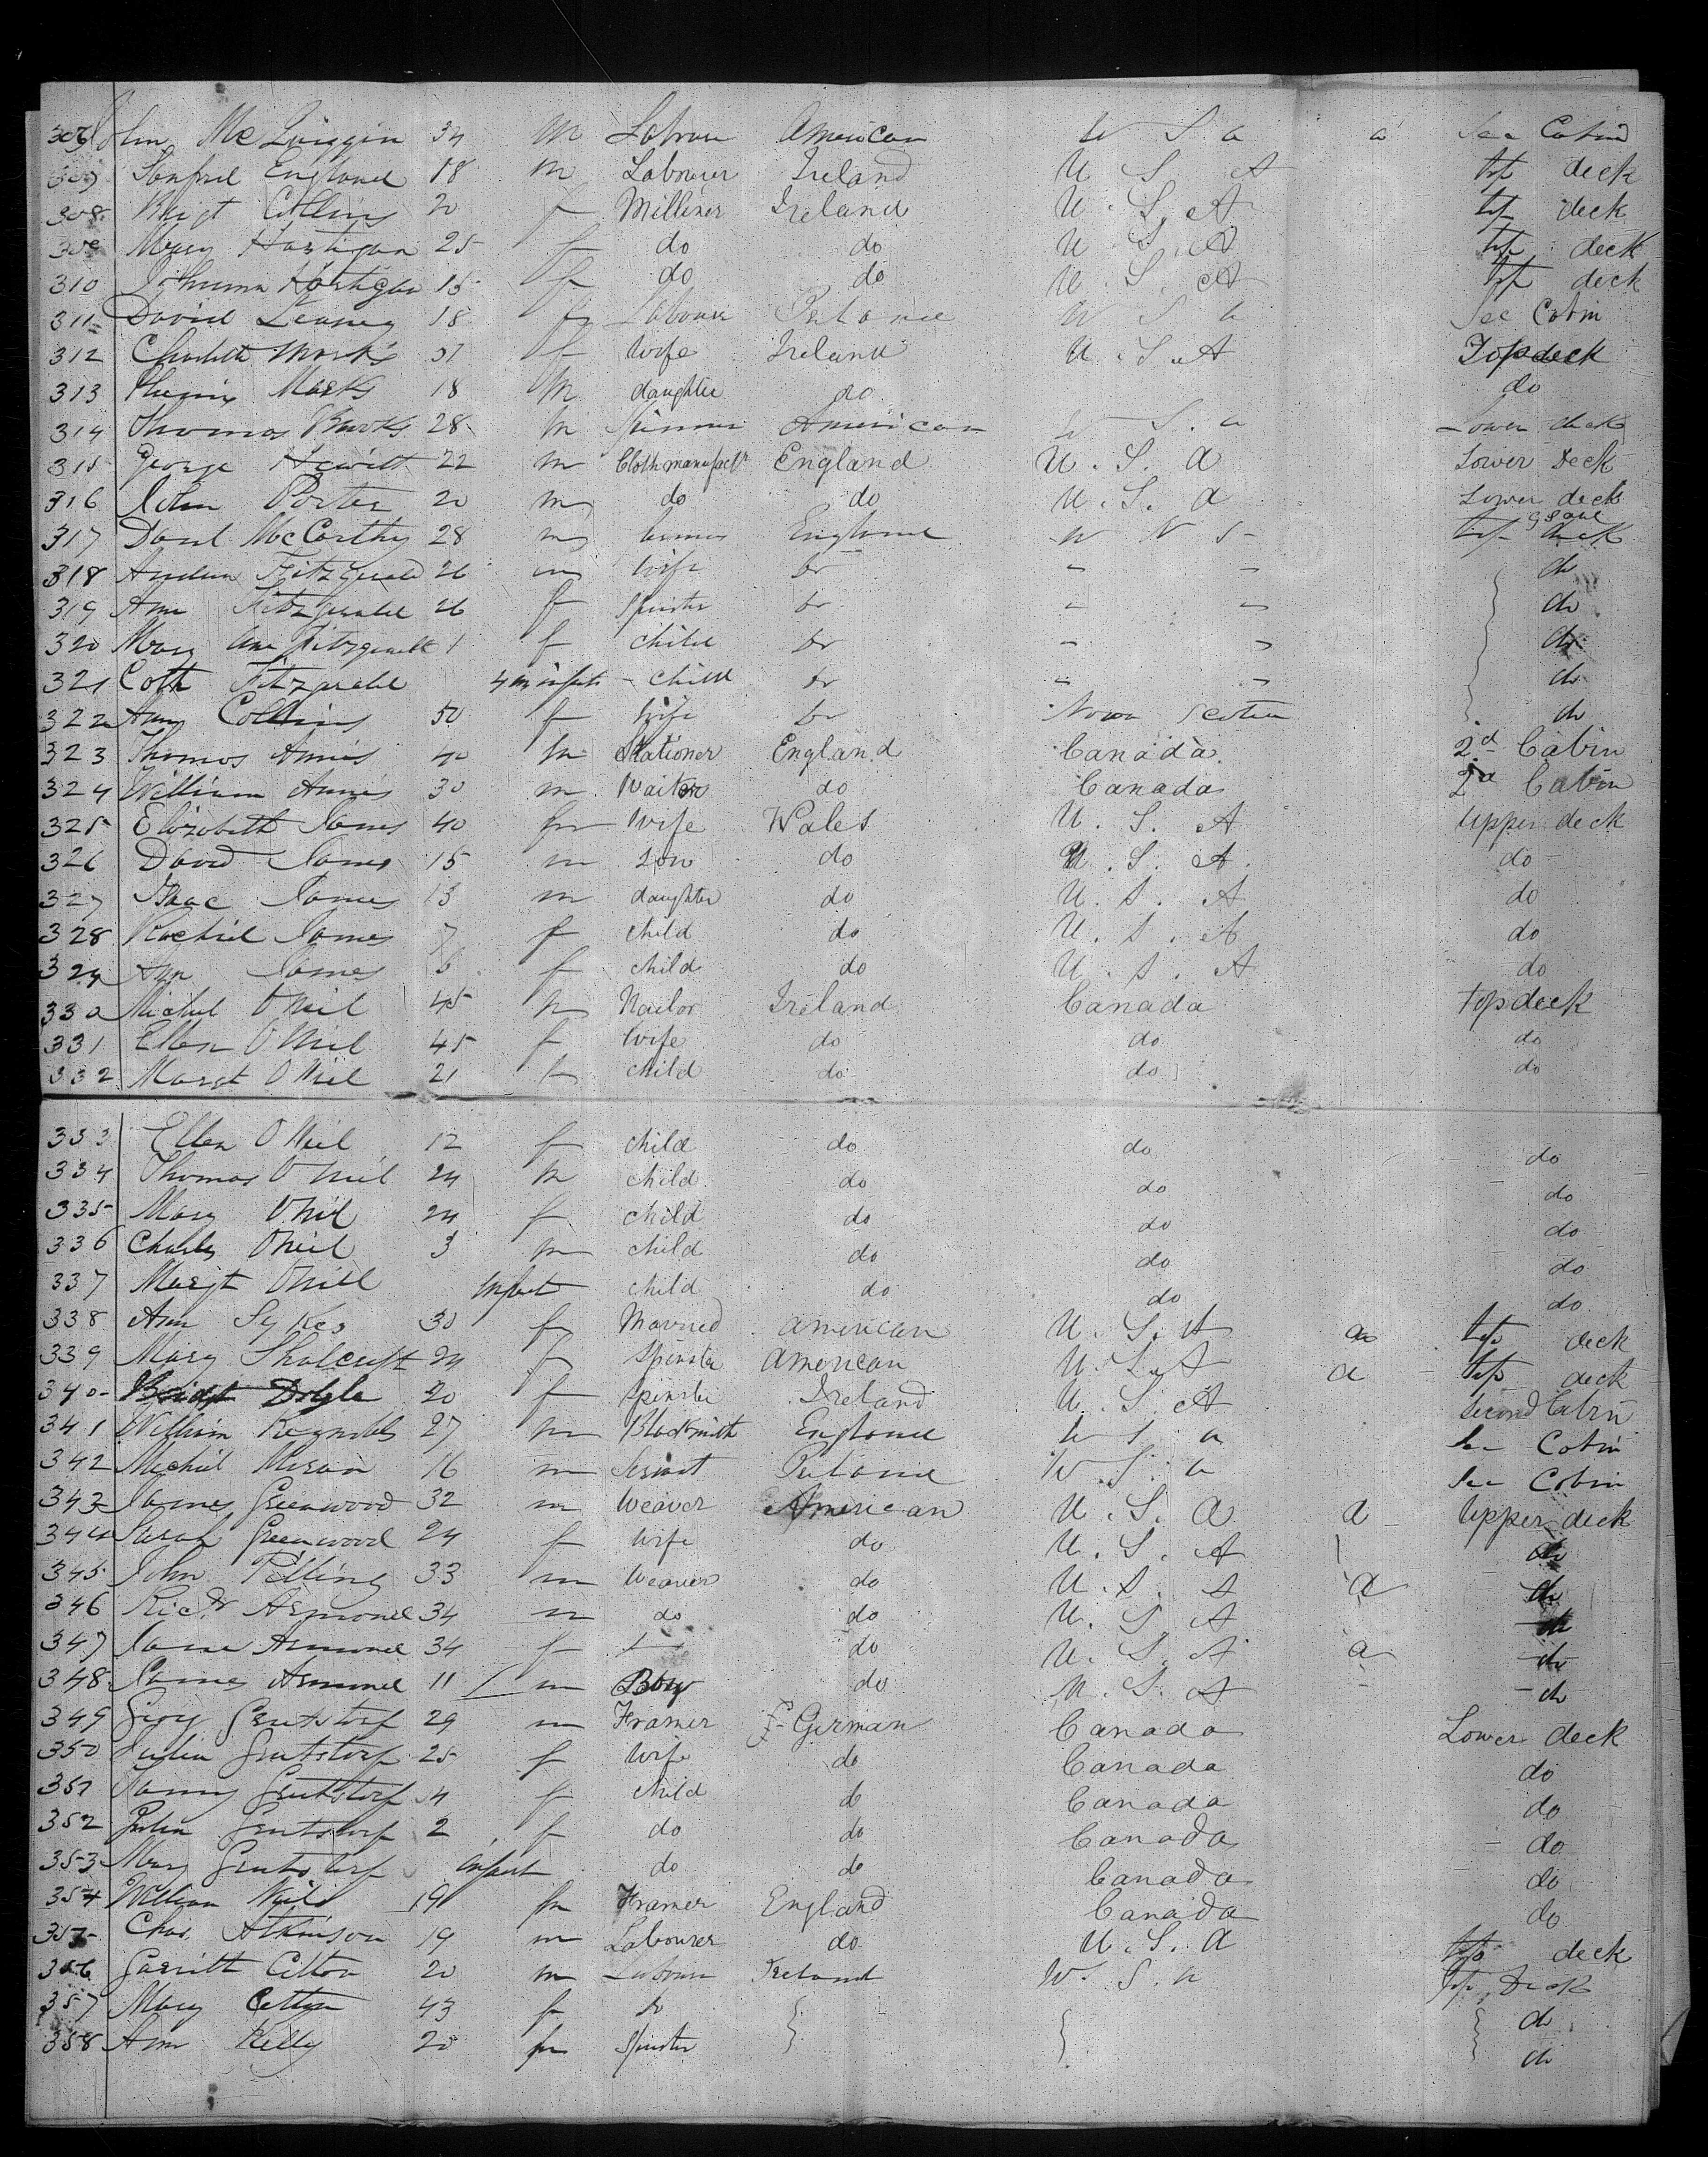 306 John McQuiggin 34 m Labour American U S a a Sec Cabin
307 England 18 m Labourer Ireland U S A top deck
308 Brigt Collins 20 f Milliner Ireland U. S. A top deck
309 Mary Hartigan 25 f do do U S. A top deck
310 Johanna Hartigan 15 f do do U. S. A top deck
311 David 18 Labour U S a Sec Cabin
312 Charlotte Marks 51 f Wife Ireland U. S. A Topdeck
313 Marks 18 m daughter do do
314 Thomas 28 m American U S. a Lower deck
315 George Hewitt 22 m Cloth manufactr England U. S. A Lower Deck
316 John Porter 20 m do do U. S. A Lower deck
317 Danl McCarthy 28 m England top deck
318 Andrew Fitzgerald 26 m wife do - - do
319 Ann Fitzgerald 26 f Spinster do - - do
320 Mary Ann Fitzgerald 1 f child do - - do
321 Cath Fitzgerald infant - child do - - do
322 Amy Collins 50 f wife do Nova Scotia do
323 Thomas Annis 40 m Stationer England Canada. 2d Cabin
324 William Annis 30 m Waiter do Canada 2d Cabin
325 Elizabeth James 40 f Wife Wales U. S. A upper deck
326 David James 15 m Son do U. S. A. do
327 Isaac James 13 m daughter do U. S. A do
328 Rachiel James 7 f child do U. S. A do
329 Ann James 6 f child do U. S. A do
330 Michel O Neil 45 m Nailor Ireland Canada topdeck
331 Ellen O Neil 45 f wife do do do
332 Margt O Neil 21 f child do do do
333 Ellen O Neil 12 f child do do do
334 Thomas O Neil 24 m child do do do
335 Mary O Neil 24 f child do do do
336 Charles O Neil 3 m child do do do
337 Margt O Neill Infant child do do do
338 Ann Sykes 30 f Married American U. S. A a top deck
339 Mary Shalcroft 24 f Spinster American U. S. A a top deck
340 Bridgt Doyle 20 f Spinster Ireland U. S. A Second Cabin
341 William Reynolds 27 m Blacksmith England U S a Sec Cabin
342 Michiel 16 m Servant U. S. a Sec Cabin
343 James Greenwood 32 m Weaver American U. S. A a Upper deck
344 Sarah Greenwood 24 f wife do U. S. A do
345 John Pilling 33 m Weaver do U. S. A a do
346 Ricd 34 m do do U. S A do
347 34 f do U. S. A a do
348 James 11 m Boy do U. S. A - do
349 29 m Framer German Canada Lower deck
350 Julia 25 f wife do Canada do
351 4 f child do Canada do
352 Julia 2 f do do Canada do
353 Mary infant do do Canada do
354 William 19 m Framer England Canada do
355 Chas. Atkinson 19 m Labourer do U. S. A top deck
356 Garritt 20 m Labour Ireland U. S. a top deck
357 Mary 43 f do do
358 Ann Kelly 20 f Spinster do